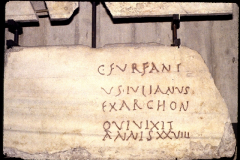 C FVRFANI
VS IVLIANVS
EXARCHON
QVI VIXIT
ANNIS XXVIII